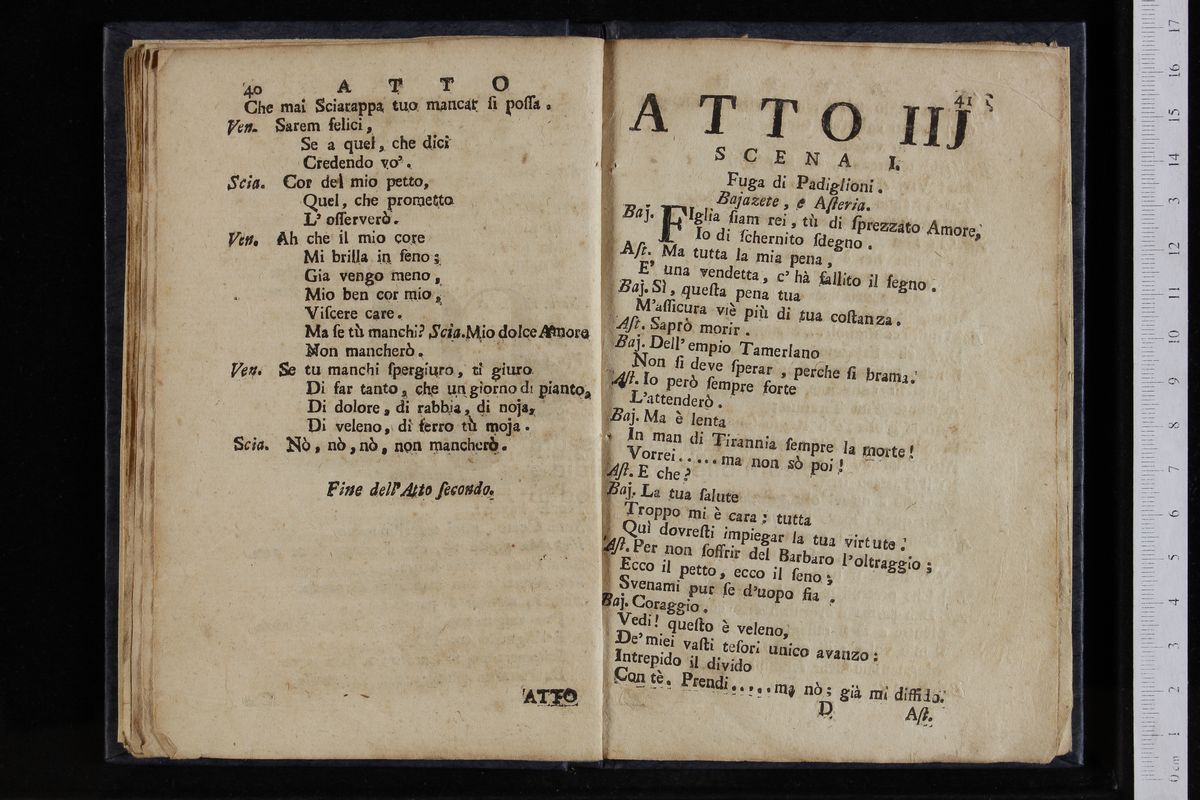 40 ATTO
Che mai Sciarappa tuo mancar ſi poſſa.
Ven. Sarem felici,
Se a quel, che dici
Credendo vo'.
Scia. Cor del mio petto,
Quel, che prometto
L' oſſerverò.
Ven. Ah che il mio core
Mi brilla in ſeno;
Gia vengo meno,
Mio ben cor mio,
Viſcere care.
Ma ſe tù manchi? Scia. Mio dolce Amore
Non mancherò.
Ven. Se tu manchi ſpergiuro, ti giuro
Di far tanto, che un giorno di pianto,
Di dolore, di rabbia, di noja,
Di veleno, di ferro tù moja.
Scia. Nò, nò, nò, non mancherò.
Fine dell' Atto ſecondo.
ATTO
41
ATTO IIJ
SCENA I.
Fuga di Padiglioni.
Bajazete, e Aſteria.
Baj. FIglia ſiam rei, tù di ſprezzato Amore,
Io di ſchernito ſdegno.
Aſt. Ma tutta la mia pena,
E' una vendetta, c' hà fallito il ſegno.
Baj. Sì, queſta pena tua
M'aſſicura viè più di tua coſtanza.
Aſt. Saprò morir.
Baj. Dell' empio Tamerlano
Non ſi deve ſperar, perche ſi brama.
Aſt. Io però ſempre forte
L'attenderò.
Baj. Ma è lenta
In man di Tirannia ſempre la morte!
Vorrei.....ma non sò poi!
Aſt. E che?
Baj. La tua ſalute
Troppo mi è cara; tutta
Quì dovreſti impiegar la tua virtute.
Aſt. Per non ſoffrir del Barbaro l'oltraggio;
Ecco il petto, ecco il ſeno;
Svenami pur ſe d'uopo ſia.
Baj. Coraggio.
Vedi! queſto è veleno,
De' miei vaſti teſori unico avanzo:
Intrepido il divido
Con tè. Prendi.....ma nò; già mi diffido.
D Aſt.
17
16
15
14
13
12
11
10
9
8
7
6
5
4
3
2
1
0 cm